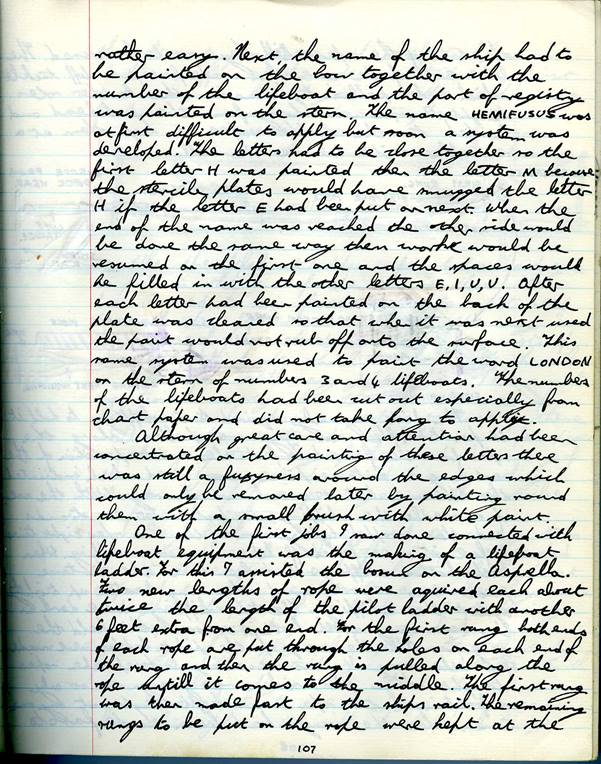 rather easy. Next, the name of the ship had to
be painted on the bow together with the
number of the lifeboat and the port of registry
was painted on the stern. The name HEMIFUSUS was
at first difficult to apply but soon a system was
developed. The letters had to be close together so the
first letter H was painted then the letter M because
the stencile plates would have smugged the letter
H if the letter E had been put on next. When the
end of the name was reached the other side would
be done the same way then work would be
resumed on the first one and the spaces would
be filled in with the other letters E, I, U, U. After
each letter had been painted on the back of the
plate was cleared so that when it was next used
the paint would not rub off onto the surface. This
same system was used to paint the word LONDON
on the stern of numbers 3 and 4 lifeboats. The numbers
of the lifeboats had been cut out especially from
chart paper and did not take long to apply.
Although great care and attention had been
concentrated on the painting of these letters there
was still a fuzyness around the edges which
could only be removed later by painting round
them with a small brush with white paint.
One of the first jobs I saw done connected with
lifeboat equipment was the making of a lifeboat
ladder. For this I assisted the bosun on the Aspella.
Two new lengths of rope were aquired each about
twice the length of the pilot ladder with another
6 feet extra from one end. For the first rung both ends
of each rope are put through the holes on each end of
the rung and then the rung is pulled along the
rope untill it comes to the middle. The first rung
was then made fast to the ships rail. The remaining
rungs to be put on the rope were kept at the
107